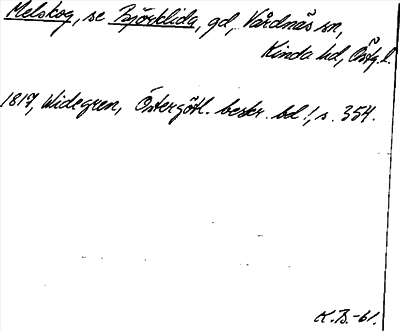 Melskog, se Björklida, gd, Vårdnäs sn,
Kinda hd, Östg.l.
1817, Widegren, Östergötl. beskr. bd 1, s. 354.
K.B.-61.